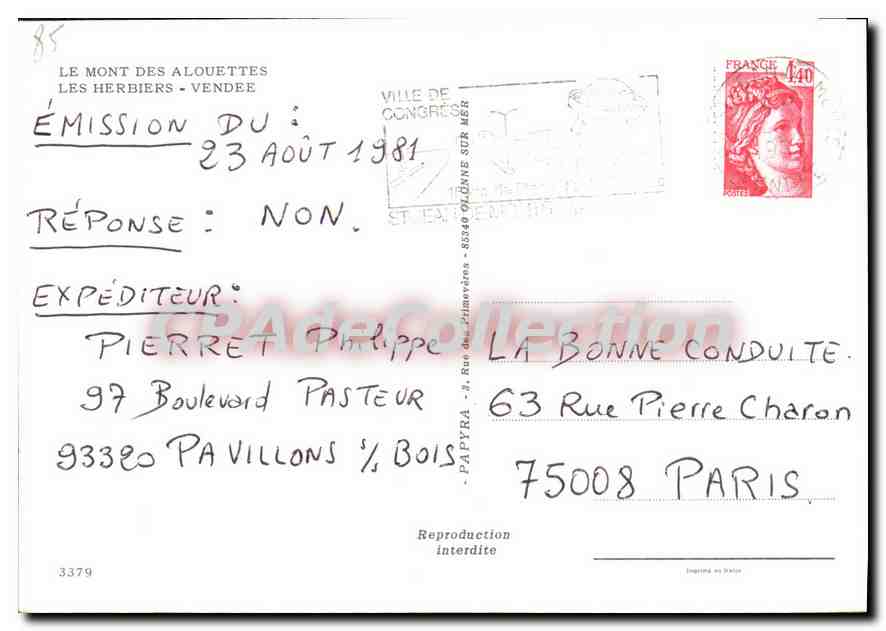 85
LE MONT DES ALOUETTES
LES HERBIERS - VENDEE
ÉMISSION DU :
23 AOÛT 1981
RÉPONSE : NON.
EXPÉDITEUR :
PIERRET Philippe
97 Boulevard PASTEUR
93320 PAVILLONS s/s BOIS
3379
VILLE DE
CONGRÈS
ST JEAN DE MONTS
FRANCE 1,40
POSTES
PAPYRA - 3, Rue des Primevères - 85340 OLONNE SUR MER
CPAdeCollection
LA BONNE CONDUITE.
63 Rue Pierre Charon
75008 PARIS.
Reproduction
interdite
Imprimé en Italie